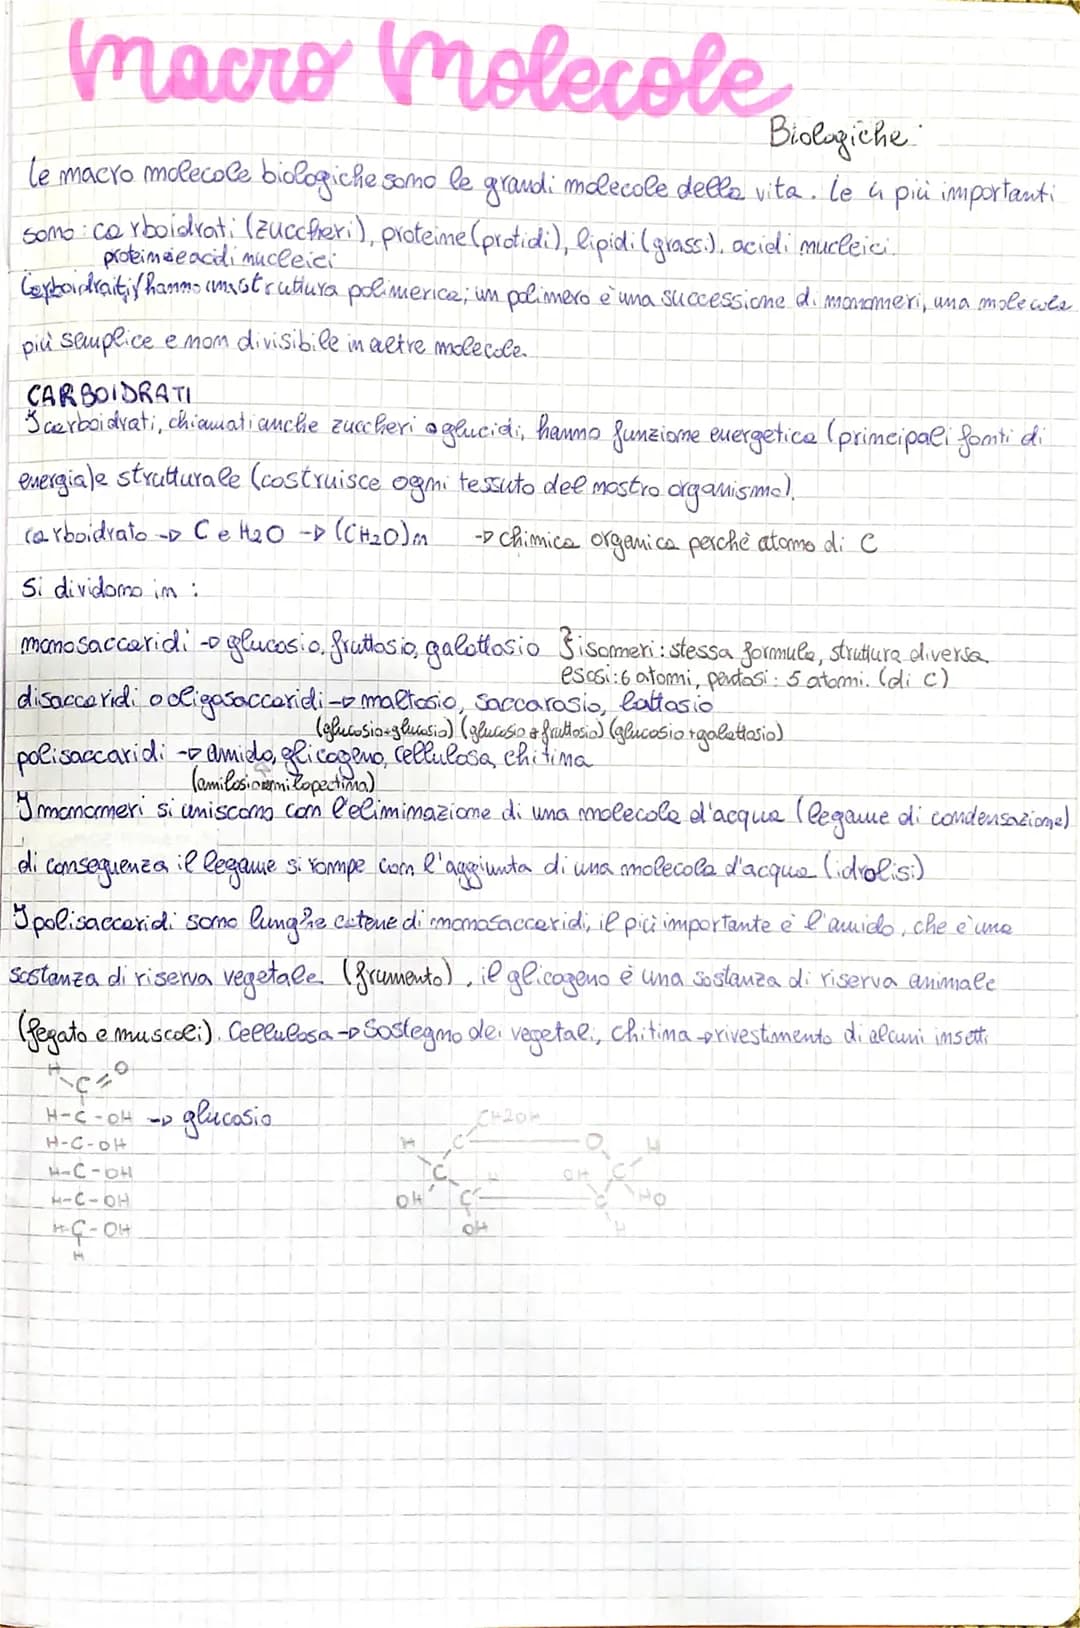 Macro Molecole
Biologiche:
le macro molecole biologiche sono le grandi molecole della vita. Le 4 più importanti
sono: carboidrati (zuccheri), proteine (protidi), lipidi (grassi), acidi nucleici.
proteine e acidi nucleici
Carboidrati, hanno una struttura polimerica; un polimero è una successione di monomeri, una molecola
più semplice e non divisibile in altre molecole.
CARBOIDRATI
I carboidrati, chiamati anche zuccheri o glucidi, hanno funzione energetica (principali fonti di
energia) e strutturale (costruisce ogni tessuto del nostro organismo).
carboidrato → C e H2O → (CH2O)n → chimica organica perchè atomo di C
Si dividono in:
monosaccaridi → glucosio, fruttosio, galattosio } isomeri: stessa formula, struttura diversa.
esosi: 6 atomi, pentosi: 5 atomi. (di C)
disaccaridi o oligosaccaridi → maltosio, saccarosio, lattosio
(glucosio+glucosio) (glucosio+fruttosio) (glucosio+galattosio)
polisaccaridi → amido, glicogeno, cellulosa, chitina
(amilosio amilopectina)
I monomeri si uniscono con l'eliminazione di una molecola d'acqua (legame di condensazione)
di conseguenza il legame si rompe con l'aggiunta di una molecola d'acqua (idrolisi)
I polisaccaridi sono lunghe catene di monosaccaridi, il più importante è l'amido, che è una
sostanza di riserva vegetale (frumento), il glicogeno è una sostanza di riserva animale
(fegato e muscoli). Cellulosa → Sostegno dei vegetali, chitina → rivestimento di alcuni insetti
H O
C
H-C-OH → glucosio
H-C-OH
H-C-OH
H-C-OH
H-C-OH
H
CH2OH
H C O H
C H OH C
OH C C HO
OH H